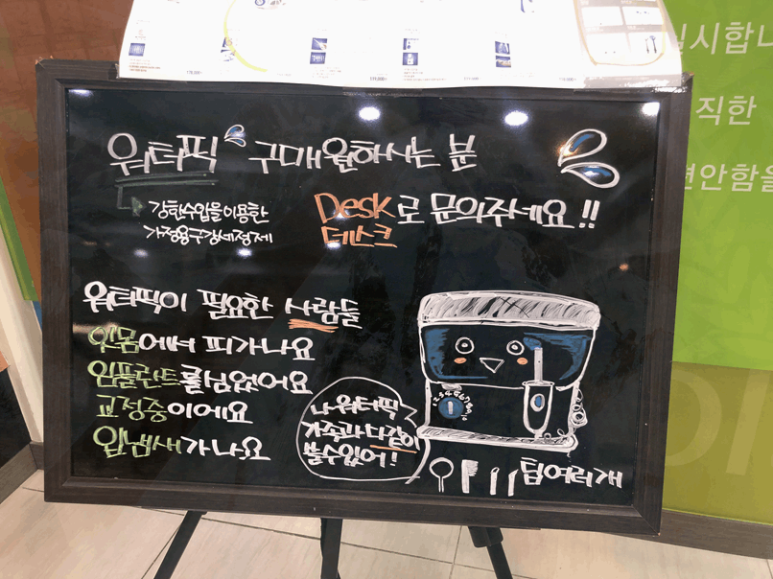 워터픽 구매원하시는 분
강한수압을이용한
가정용구강세정제
Desk로 문의주세요!!
데스크
워터픽이 필요한 사람들
잇몸에서 피가나요
임플란트를심었어요
교정중이에요
입냄새가나요
나워터픽
가족과다같이
쓸수있어!
1234567890
팁여러개
십시합니
직한
편안함을